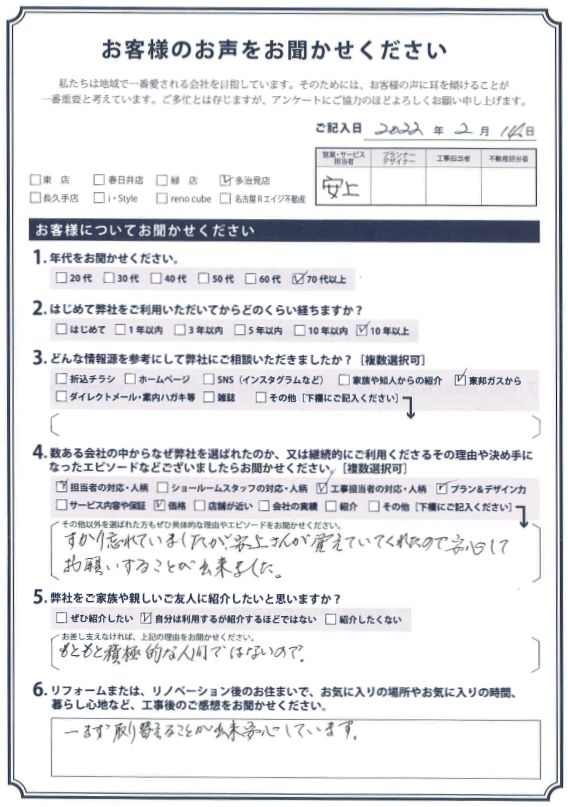 お客様のお声をお聞かせください
私たちは地域で一番愛される会社を目指しています。そのためには、お客様の声に耳を傾けることが
一番重要と考えています。ご多忙とは存じますが、アンケートにご協力のほどよろしくお願い申し上げます。
ご記入日 2022 年 2 月 14日
営業・サービス担当者 プランナーデザイナー 工事担当者 不動産担当者
安上
□東店 □春日井店 □緑店 ☑多治見店
□長久手店 □i・Style □reno cube □名古屋Rエイジ不動産
お客様についてお聞かせください
1. 年代をお聞かせください。
□20代 □30代 □40代 □50代 □60代 ☑70代以上
2. はじめて弊社をご利用いただいてからどのくらい経ちますか？
□はじめて □1年以内 □3年以内 □5年以内 □10年以内 ☑10年以上
3. どんな情報源を参考にして弊社にご相談いただきましたか？［複数選択可］
□折込チラシ □ホームページ □SNS（インスタグラムなど） □家族や知人からの紹介 ☑東邦ガスから
□ダイレクトメール・案内ハガキ等 □雑誌 □その他［下欄にご記入ください］
4. 数ある会社の中からなぜ弊社を選ばれたのか、又は継続的にご利用くださるその理由や決め手に
なったエピソードなどございましたらお聞かせください。［複数選択可］
☑担当者の対応・人柄 □ショールームスタッフの対応・人柄 ☑工事担当者の対応・人柄 ☑プラン&デザイン力
□サービス内容や保証 ☑価格 □店舗が近い □会社の実績 □紹介 □その他［下欄にご記入ください］
その他以外を選ばれた方もぜひ具体的な理由やエピソードをお聞かせください。
すかり忘れていましたが、安上さんが覚えていてくれたので安心して
お願いすることが出来ました。
5. 弊社をご家族や親しいご友人に紹介したいと思いますか？
□ぜひ紹介したい ☑自分は利用するが紹介するほどではない □紹介したくない
お差し支えなければ、上記の理由をお聞かせください。
もともと積極的な人間ではないので。
6. リフォームまたは、リノベーション後のお住まいで、お気に入りの場所やお気に入りの時間、
暮らし心地など、工事後のご感想をお聞かせください。
一まず取り替えることが出来安心しています。